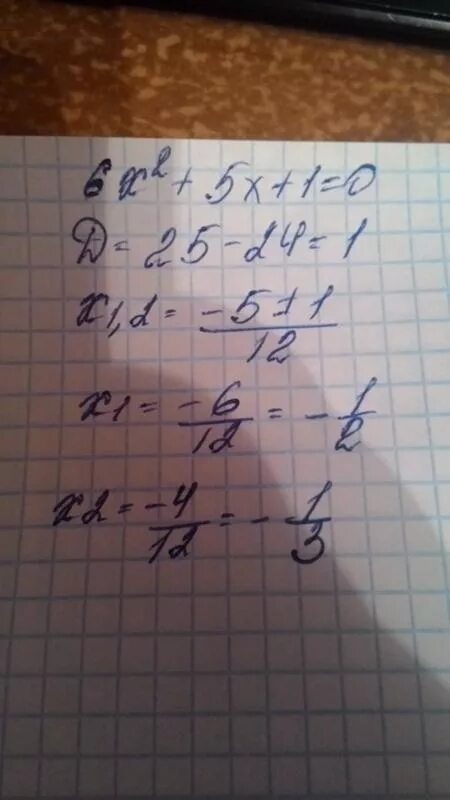 6x² + 5x + 1 = 0
D = 25 - 24 = 1
x1,2 = (-5 ± 1)/12
x1 = -6/12 = -1/2
x2 = -4/12 = -1/3